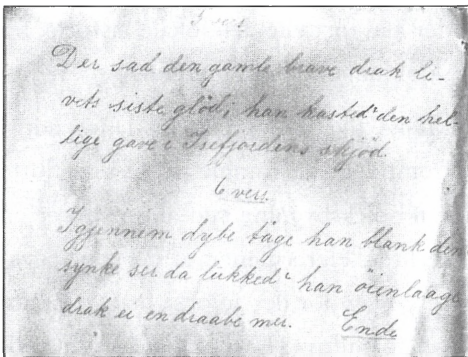 5 vers
Der sad den gamle brave drak li-
vets siste glöd, han kasted' den hel-
lige gave i Isefjordens skjöd.
6 vers.
Igjennem dybe tåge han blank den
synke ser da lukked' han öienlaage
drak ei en draabe mer. Ende